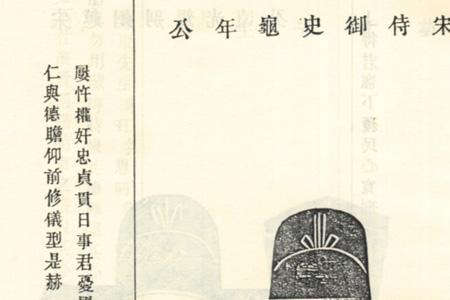 宋侍御史龜年公
屢忤權奸忠貞貫日事君憂
仁與德瞻仰前修儀型是赫